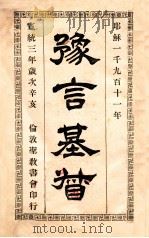 耶穌一千九百十一年
豫言基督
宣統三年歲次辛亥
倫敦聖教書會印行
www.topbook.com